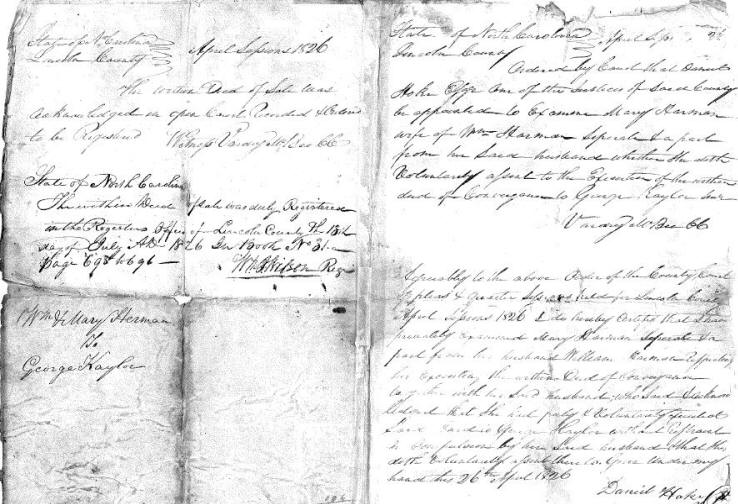 State of N Carolina
Lincoln County
April Sessions 1826
The within Deed of Sale was
acknowledged in open Court Recorded & Ordered
to be Registered
Vardry McBee CC
State of North Carolina
The within Deed of sale was duly Registered
in the Registers Office of Lincoln County the
day of July AD 1826 In Book No 31
page 695 to 696
Reg
Wm & Mary Herman
To
George Haylor
State of North Carolina
Lincoln County
April
Ordered by Court that Daniel
Hoke Esqr one of the Justices of Said County
be appointed to Examine Mary Harman
wife of Wm Harman Seperate & a part
from her Said husband whether She doth
Voluntarily assent to the Execution of the within
deed of Conveyance to George Haylor
Vardry McBee CC
Agreeably to the above Order of the County Court
of pleas & quarter Sessions held for Lincoln County
April Sessions 1826 I do hereby Certify that I have
privately Examined Mary Harman Seperate &
part from her husband William Harman Respecting
her Executing the within Deed of Conveyance
together with her Said husband who Said
that She had & Voluntarily
Said Land to George Haylor without
or by her Said husband & that She
doth Voluntarily assent thereto Given under my
hand this 26th April 1826
Daniel Hoke